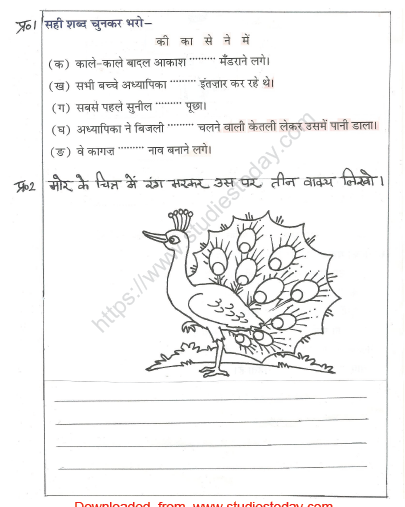 प्र०1 सही शब्द चुनकर भरो–
की का से ने में
(क) काले-काले बादल आकाश ········· मँडराने लगे।
(ख) सभी बच्चे अध्यापिका ········· इंतज़ार कर रहे थे।
(ग) सबसे पहले सुनील ········· पूछा।
(घ) अध्यापिका ने बिजली ········· चलने वाली केतली लेकर उसमें पानी डाला।
(ङ) वे कागज़ ········· नाव बनाने लगे।
प्र०2 मोर के चित्र में रंग भरकर उस पर तीन वाक्य लिखो।
https://www.studiestoday.com
Downloaded from www.studiestoday.com